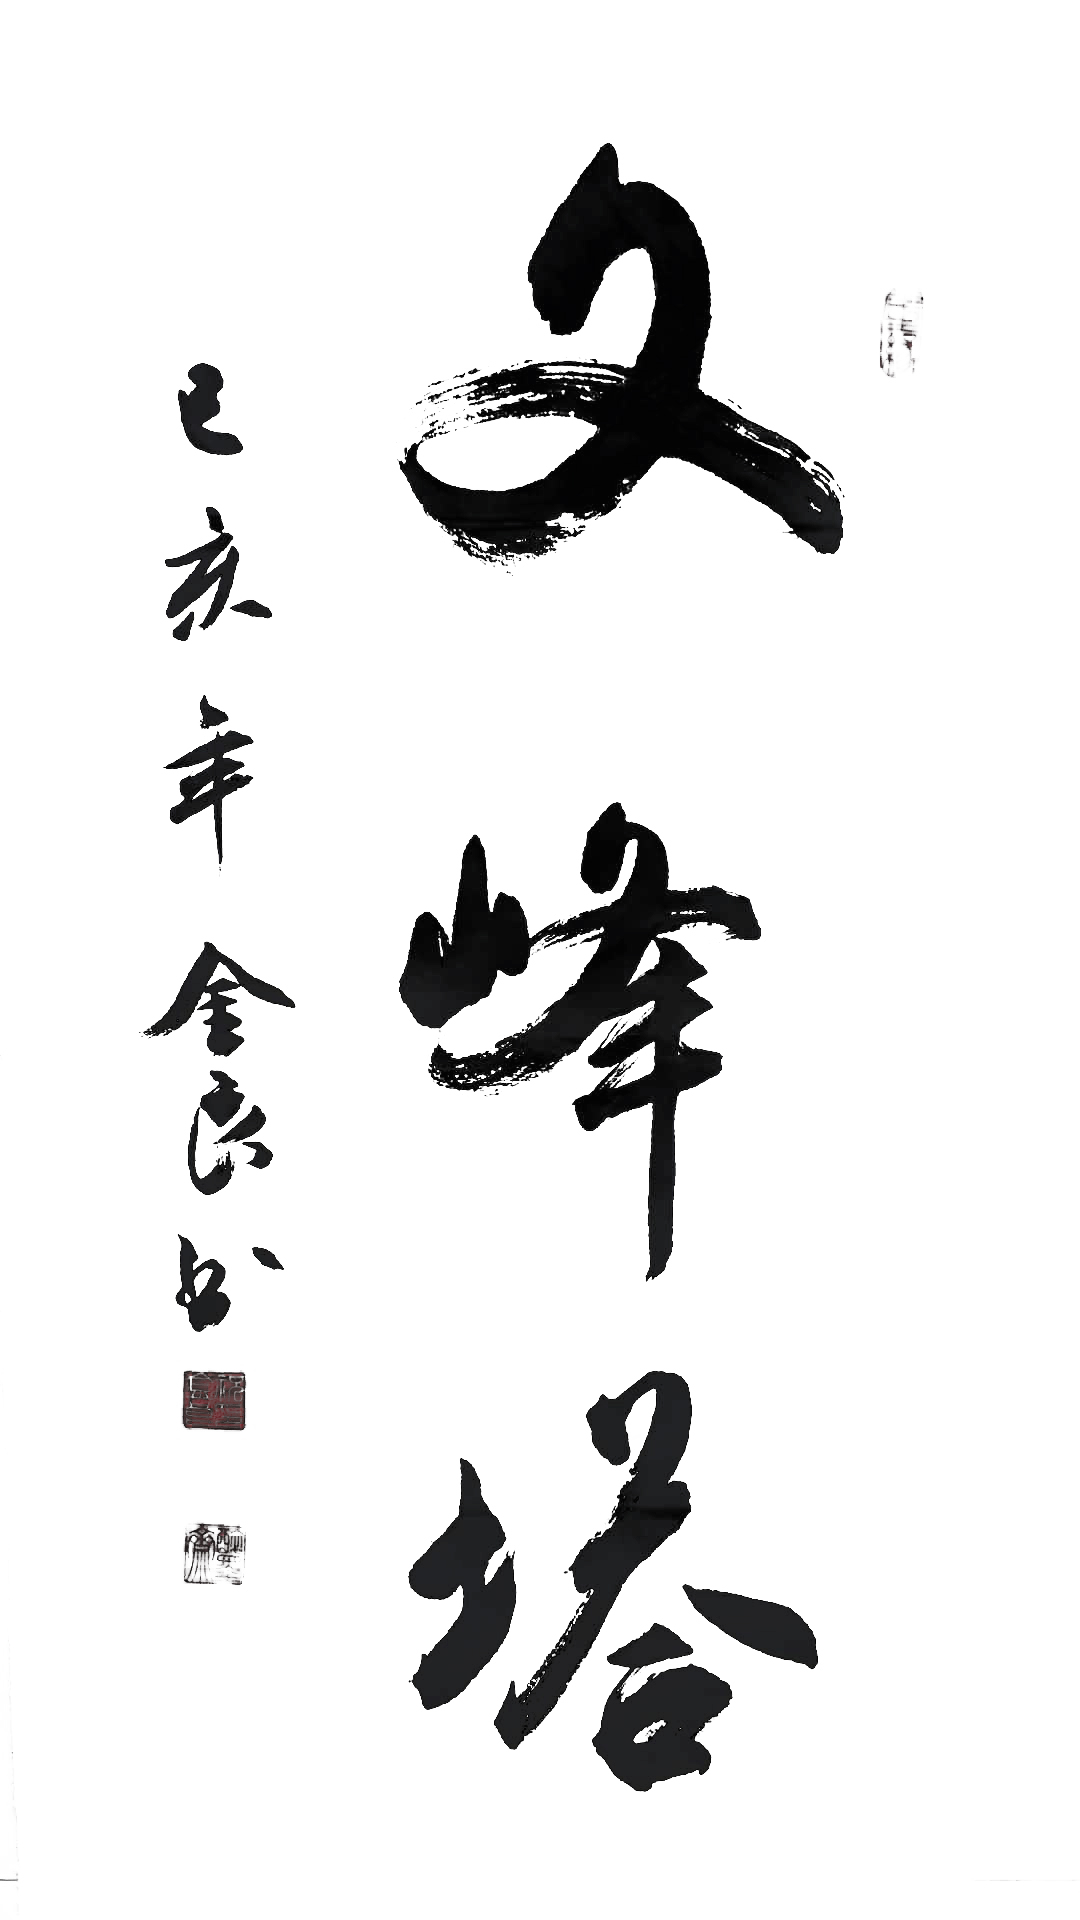 文峰塔
己亥年 金良书